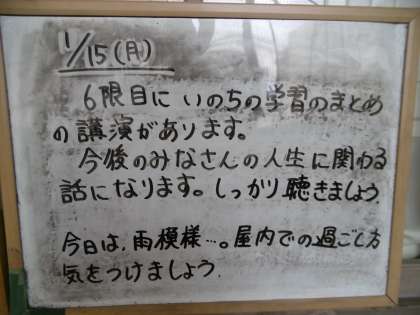 1/15(月)
6限目にいのちの学習のまとめ
の講演があります。
今後のみなさんの人生に関わる
話になります。しっかり聴きましょう.
今日は,雨模様…。屋内での過ごし方
気をつけましょう.